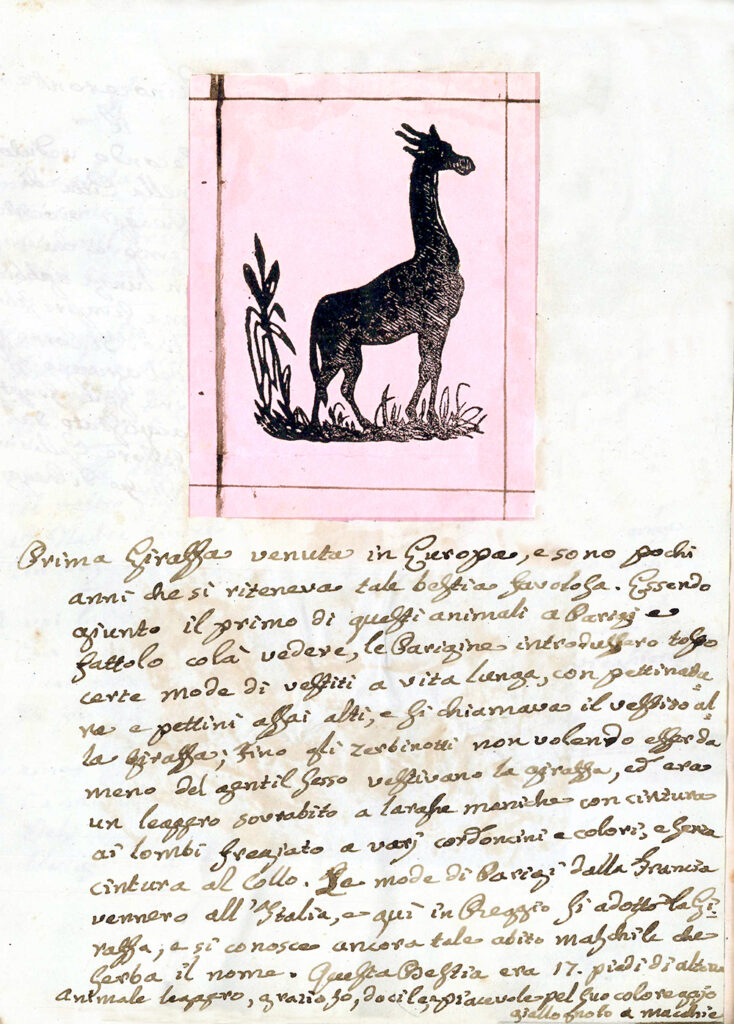 Prima Giraffa venuta in Europa, e sono pochi
anni che si riteneva tale bestia favolosa. Essendo
giunto il primo di questi animali a Parigi e
fattolo colà vedere, le Parigine introdussero tosto
certe mode di vestiti a vita lunga, con pettinatu=
re e pettini assai alti, e si chiamava il vestito al=
la Giraffa; fino gli zerbinotti non volendo esser da
meno del gentil sesso vestivano la giraffa, ed era
un leggero sovrabito a larghe maniche con cintura
ai lombi fregiato a varj cordoncini e colori, e senza
cintura al collo. Le mode di Parigi dalla Francia
vennero all'Italia, e quì in Reggio si adottò la Gi=
raffa, e si conosce ancora tale abito maschile che
serba il nome. Questa Bestia era 17. piedi di altezza
animale leggero, grazioso, docile, piacevole pel suo colore
giallognolo a macchie